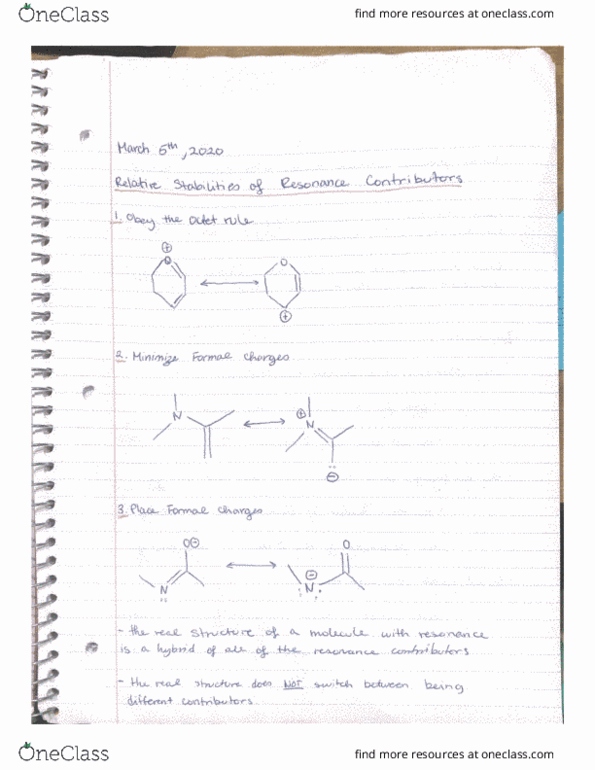 OneClass
find more resources at oneclass.com
March 5th, 2020
Relative Stabilities of Resonance Contributors
1. Obey the octet rule
⊕
O
O
⊕
2. Minimize Formal Charges
N
⊕
N
⊖
3. Place Formal Charges
O⊖
O
N
⊖
N
- the real structure of a molecule with resonance
is a hybrid of all of the resonance contributors
- the real structure does NOT switch between being
different contributors.
OneClass
find more resources at oneclass.com